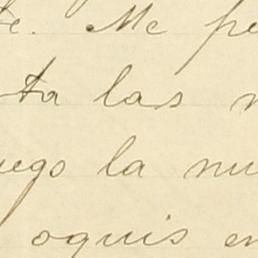 te. Me pe
ta las n
uego la nu
oquis en